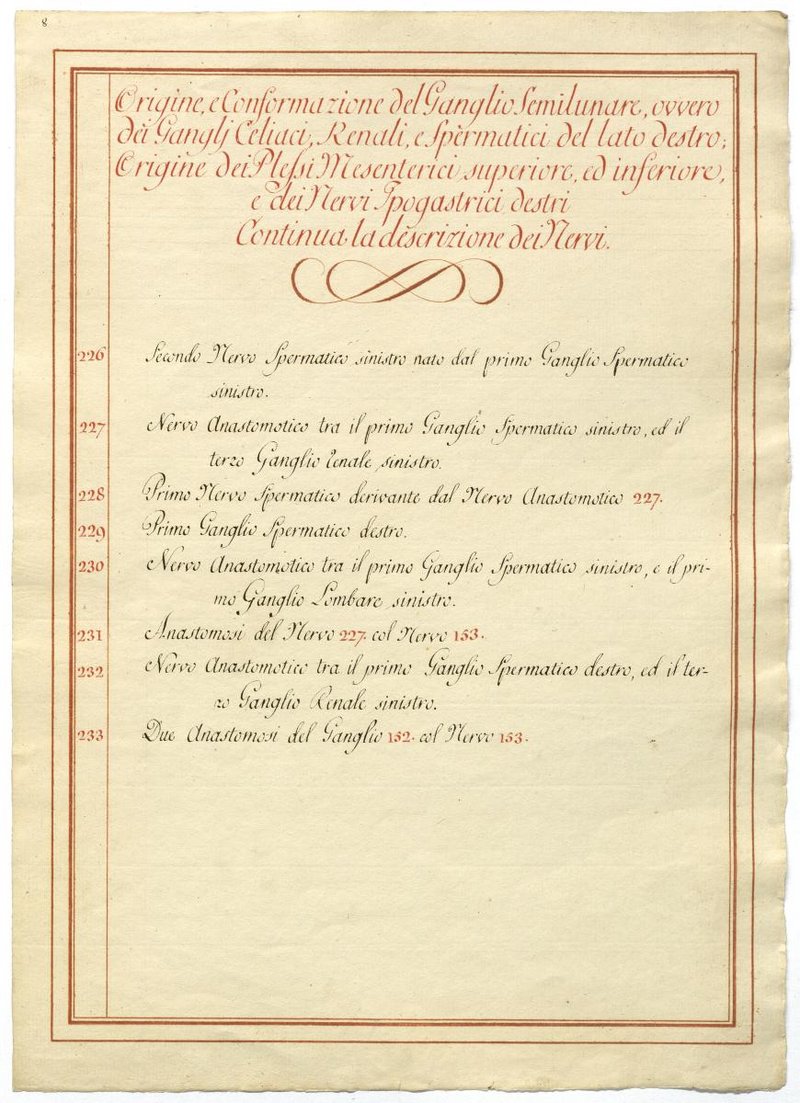 8
Origine, e Conformazione del Ganglio Semilunare, ovvero
dei Ganglj Celiaci, Renali, e Spermatici del lato destro;
Origine dei Plessi Mesenterici superiore, ed inferiore,
e dei Nervi Ipogastrici destri
Continua la descrizione dei Nervi.
226 Secondo Nervo Spermatico sinistro nato dal primo Ganglio Spermatico
sinistro.
227 Nervo Anastomotico tra il primo Ganglio Spermatico sinistro, ed il
terzo Ganglio Renale sinistro.
228 Primo Nervo Spermatico derivante dal Nervo Anastomotico 227.
229 Primo Ganglio Spermatico destro.
230 Nervo Anastomotico tra il primo Ganglio Spermatico sinistro, e il pri-
mo Ganglio Lombare sinistro.
231 Anastomosi del Nervo 227. col Nervo 153.
232 Nervo Anastomotico tra il primo Ganglio Spermatico destro, ed il ter-
zo Ganglio Renale sinistro.
233 Due Anastomosi del Ganglio 152. col Nervo 153.